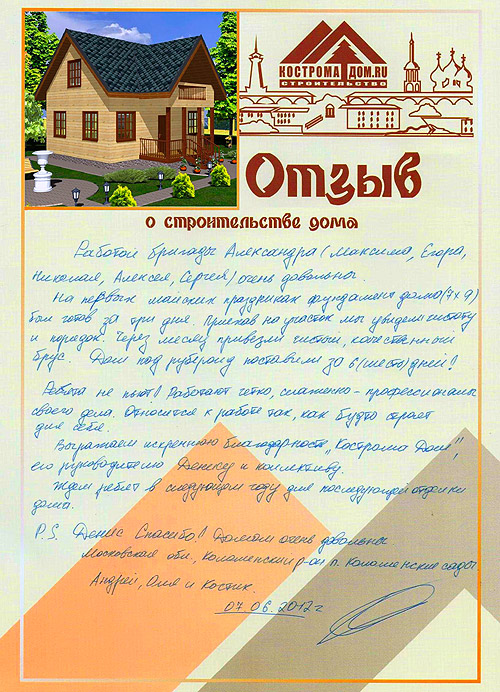 КОСТРОМА ДОМ.RU
СТРОИТЕЛЬСТВО
Отзыв
о строительстве дома
Работой бригады Александра (Максима, Егора,
Николая, Алексея, Сергея) очень довольны
На первых майских праздниках фундамент дома (7х9)
был готов за три дня. Приехав на участок мы увидели чистоту
и порядок. Через месяц привезли чистый, качественный
брус. Дом под рубероид поставили за 6 (шесть) дней!
Ребята не пьют! Работают четко, слаженно - профессионалы
своего дела. Относятся к работе так, как будто строят
для себя.
Выражаем искреннюю благодарность "Кострома Дом",
его руководителю Денису и коллективу.
Ждем ребят в следующем году для последующей отделки
дома.
P.S. Денис Спасибо! Домом очень довольны
Московская обл., Коломенский р-он п. Коломенские сады
Андрей, Оля и Костик.
07.06.2012г